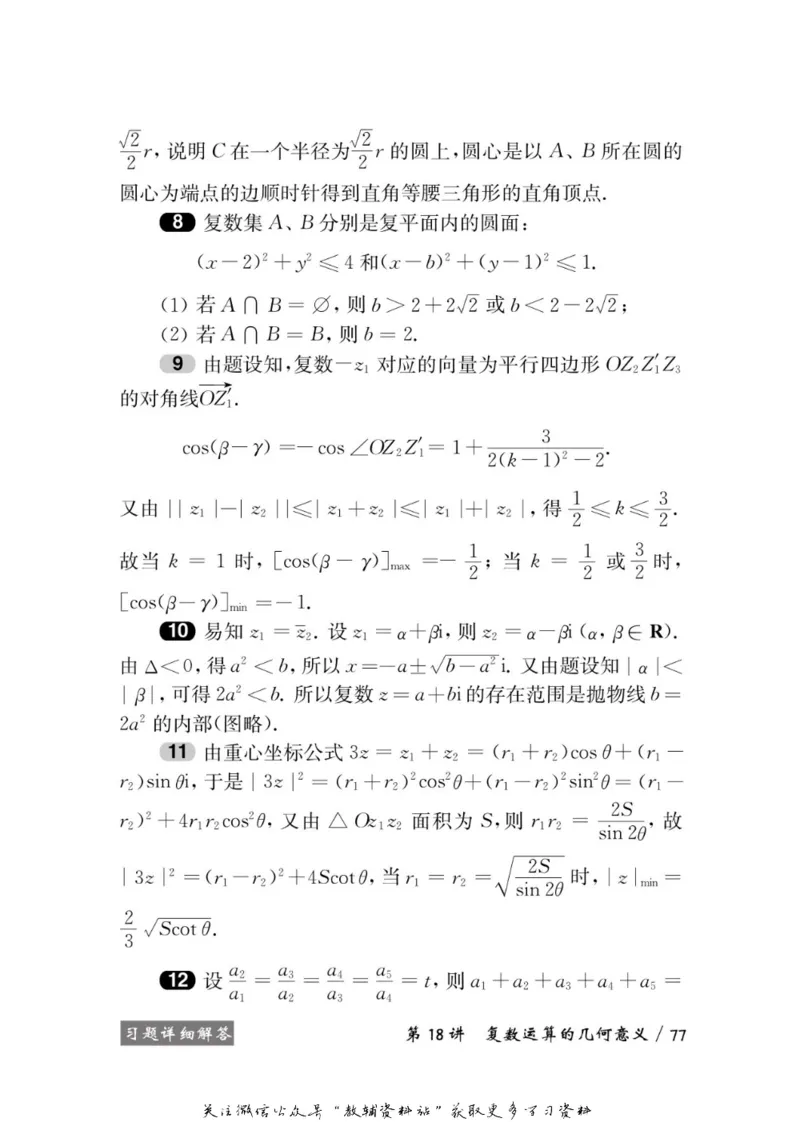 $\frac{\sqrt{2}}{2}r$，说明 C 在一个半径为 $\frac{\sqrt{2}}{2}r$ 的圆上，圆心是以 A、B 所在圆的
圆心为端点的边顺时针得到直角等腰三角形的直角顶点.
8 复数集 A、B 分别是复平面内的圆面：
$(x-2)^2+y^2\leqslant 4$ 和 $(x-b)^2+(y-1)^2\leqslant 1$.
(1) 若 $A\cap B=\varnothing$，则 $b>2+2\sqrt{2}$ 或 $b<2-2\sqrt{2}$；
(2) 若 $A\cap B=B$，则 $b=2$.
9 由题设知，复数 $-z_1$ 对应的向量为平行四边形 $OZ_2Z_1'Z_3$
的对角线 $\overrightarrow{OZ_1'}$.
$\cos(\beta-\gamma)=-\cos\angle OZ_2Z_1'=1+\frac{3}{2(k-1)^2-2}$.
又由 $||z_1|-|z_2||\leqslant|z_1+z_2|\leqslant|z_1|+|z_2|$，得 $\frac{1}{2}\leqslant k\leqslant\frac{3}{2}$.
故当 $k=1$ 时，$[\cos(\beta-\gamma)]_{max}=-\frac{1}{2}$；当 $k=\frac{1}{2}$ 或 $\frac{3}{2}$ 时，
$[\cos(\beta-\gamma)]_{min}=-1$.
10 易知 $z_1=\overline{z}_2$. 设 $z_1=\alpha+\beta i$，则 $z_2=\alpha-\beta i$ $(\alpha,\beta\in\mathbf{R})$.
由 $\Delta<0$，得 $a^2<b$，所以 $x=-a\pm\sqrt{b-a^2}i$. 又由题设知 $|\alpha|<$
$|\beta|$，可得 $2a^2<b$. 所以复数 $z=a+bi$ 的存在范围是抛物线 $b=$
$2a^2$ 的内部(图略).
11 由重心坐标公式 $3z=z_1+z_2=(r_1+r_2)\cos\theta+(r_1-$
$r_2)\sin\theta i$，于是 $|3z|^2=(r_1+r_2)^2\cos^2\theta+(r_1-r_2)^2\sin^2\theta=(r_1-$
$r_2)^2+4r_1r_2\cos^2\theta$，又由 $\triangle Oz_1z_2$ 面积为 S，则 $r_1r_2=\frac{2S}{\sin 2\theta}$，故
$|3z|^2=(r_1-r_2)^2+4S\cot\theta$，当 $r_1=r_2=\sqrt{\frac{2S}{\sin 2\theta}}$ 时，$|z|_{min}=$
$\frac{2}{3}\sqrt{S\cot\theta}$.
12 设 $\frac{a_2}{a_1}=\frac{a_3}{a_2}=\frac{a_4}{a_3}=\frac{a_5}{a_4}=t$，则 $a_1+a_2+a_3+a_4+a_5=$
习题详细解答 第 18 讲 复数运算的几何意义 / 77
关注微信公众号“教辅资料站”获取更多学习资料